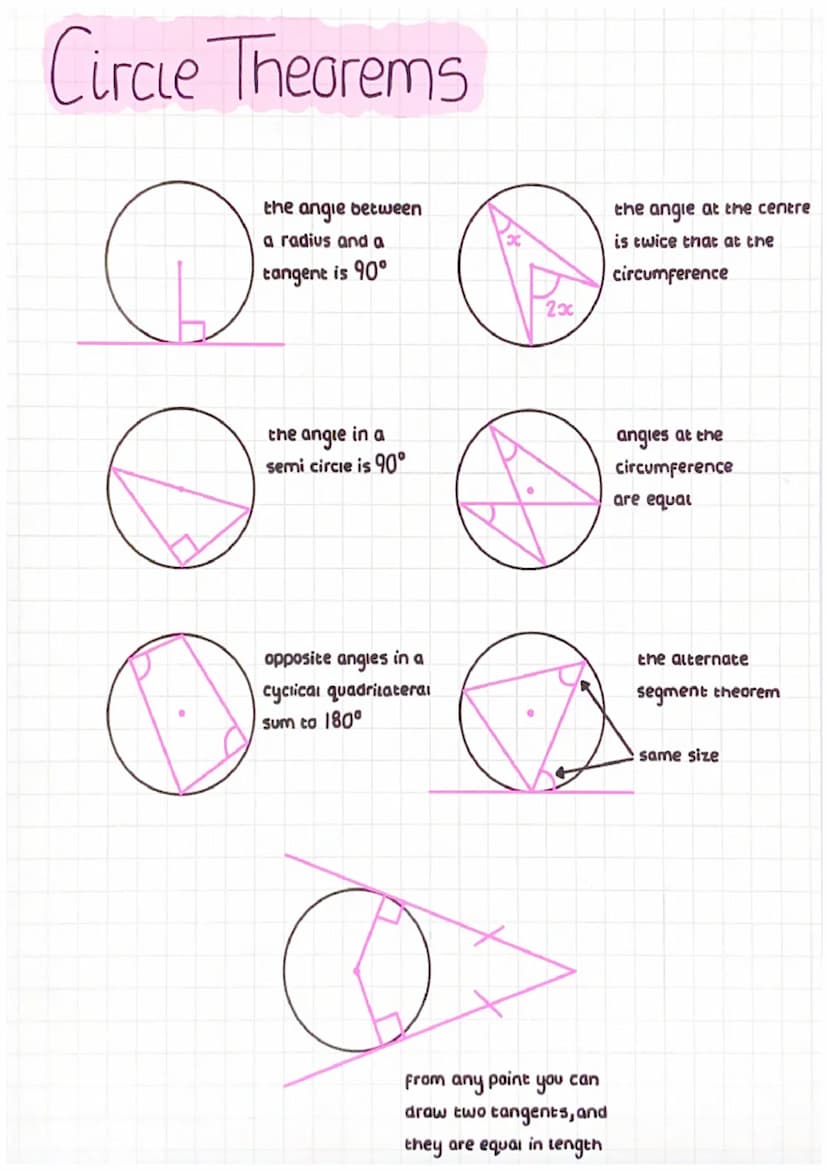 Circle Theorems
the angle between
a radius and a
tangent is 90°
x
2x
the angle at the centre
is twice that at the
circumference
the angle in a
semi circle is 90°
angles at the
circumference
are equal
opposite angles in a
cyclical quadrilateral
sum to 180°
the alternate
segment theorem
same size
from any point you can
draw two tangents, and
they are equal in length